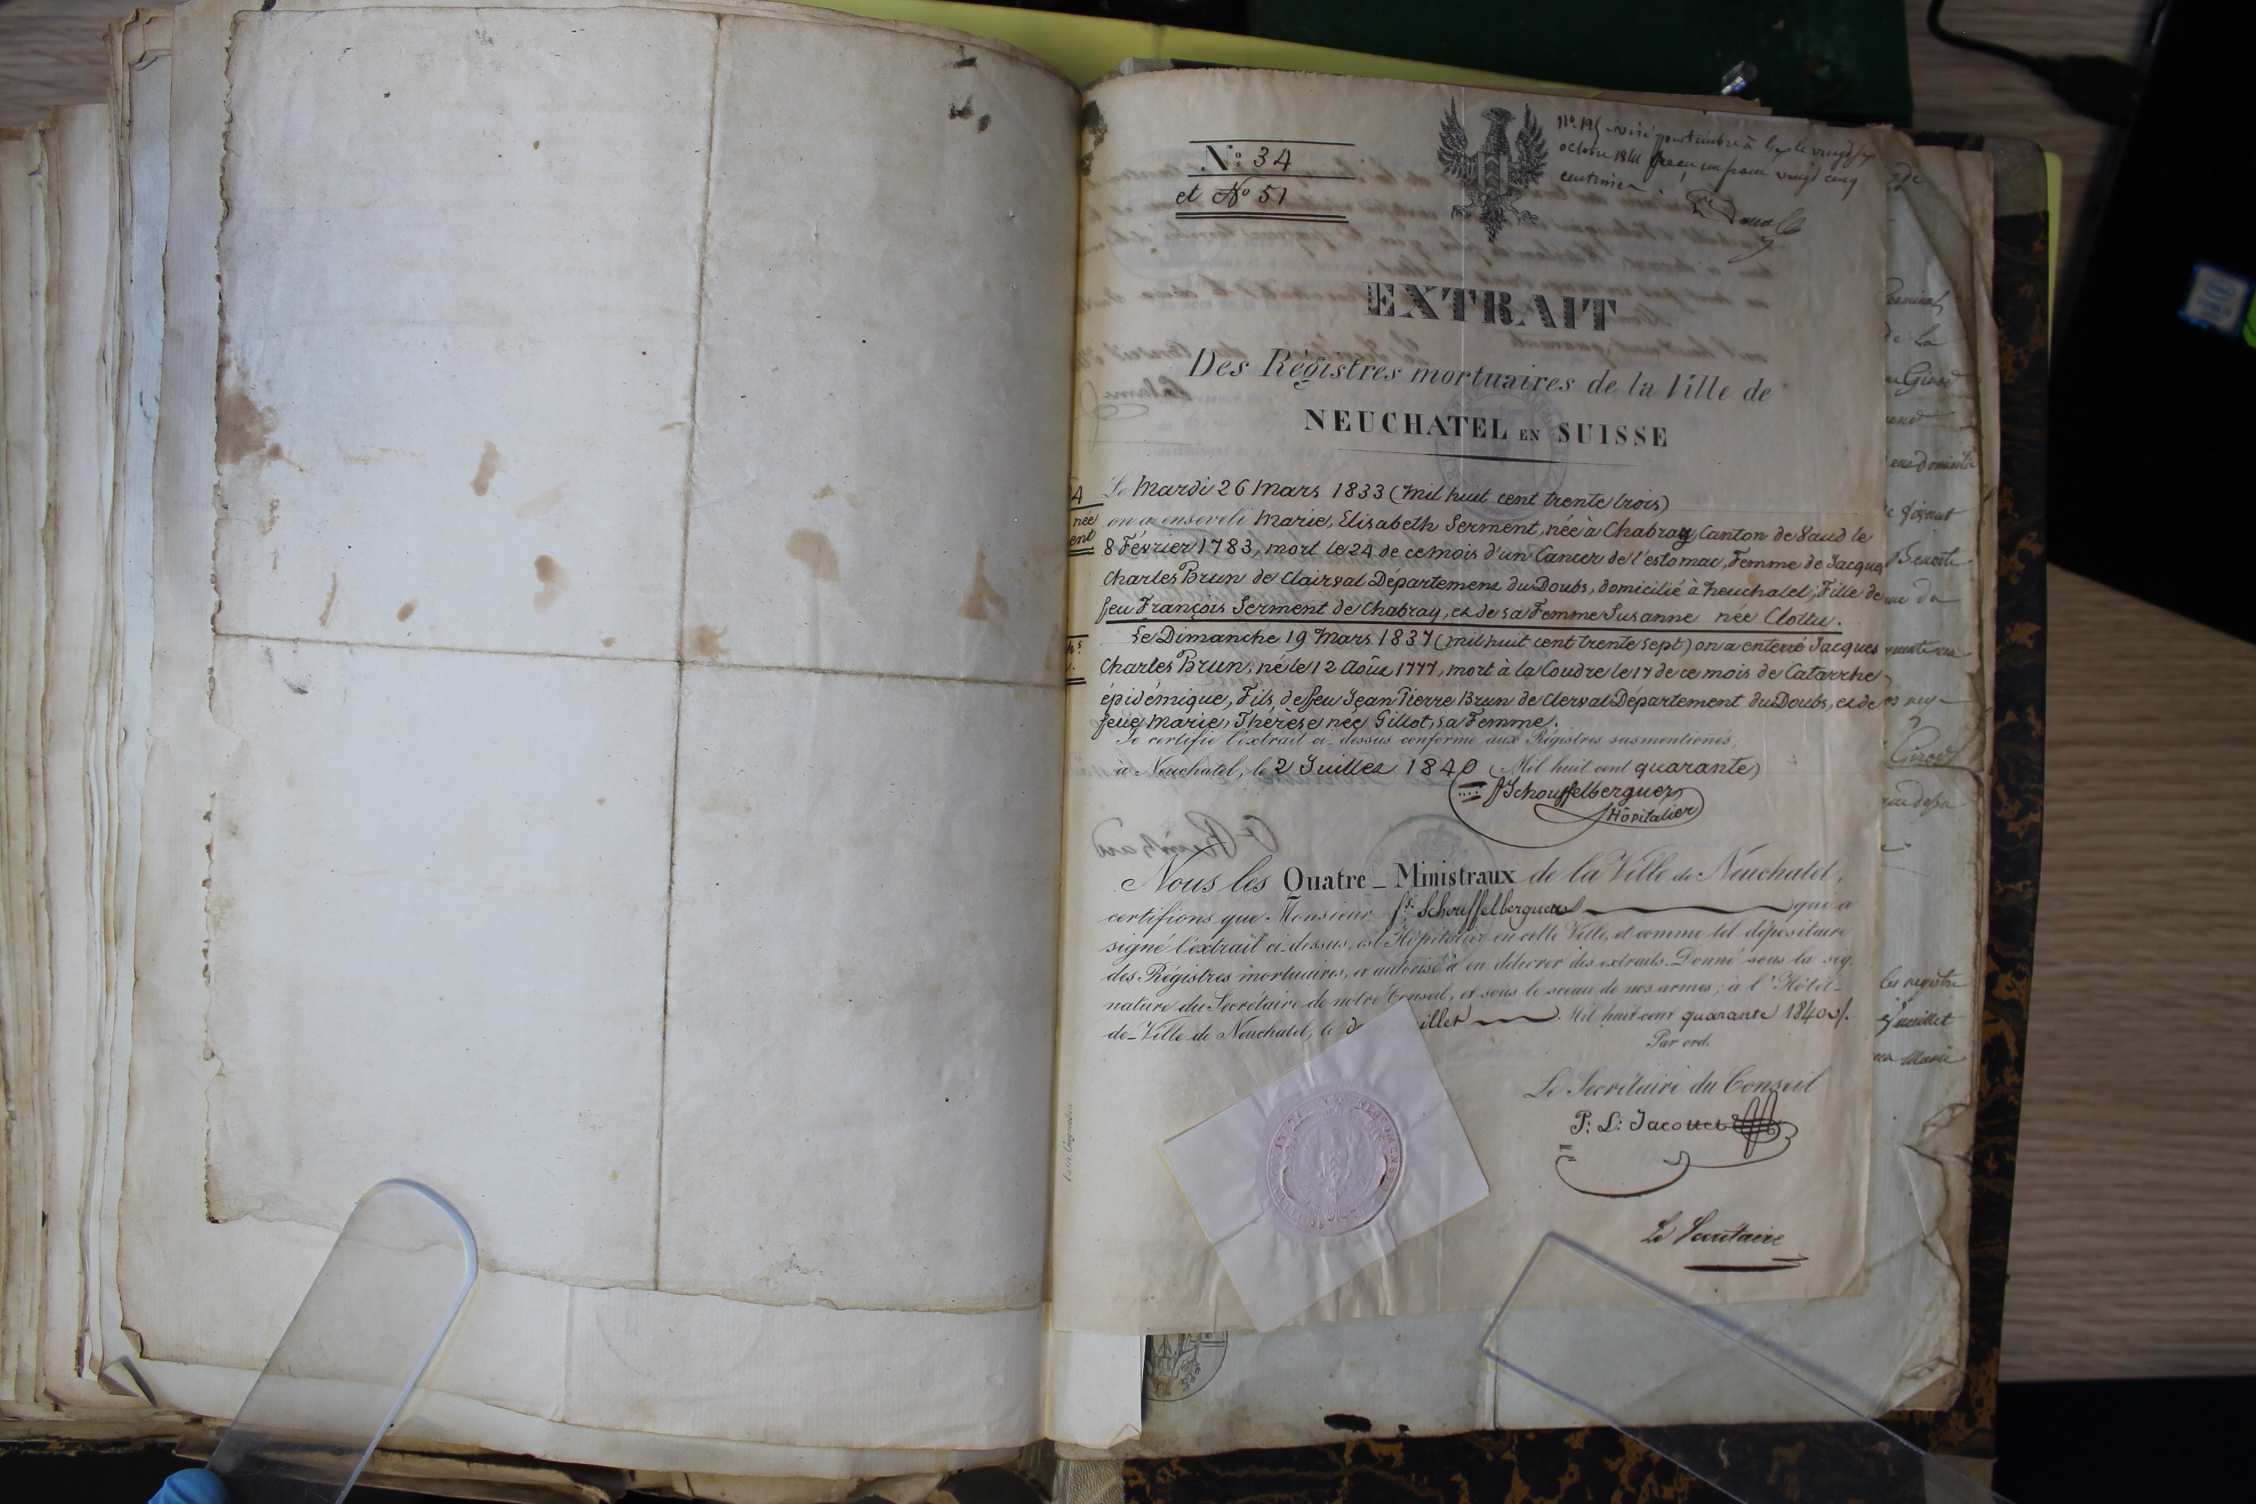 N.º 34
et Nº 51
visé pour timbre à le vingt
octobre 1841 reçu un franc vingt cinq
centimes
EXTRAIT
Des Régistres mortuaires de la Ville de
NEUCHATEL EN SUISSE
Le Mardi 26 Mars 1833 (mil huit cent trente trois)
on a enseveli Marie, Elisabeth Serment, née à Chabray, Canton de Vaud le
8 Février 1783, mort le 24 de ce mois d'un Cancer de l'estomac, Femme de Jacques
Charles Brun de Clairval Département du Doubs, domicilié à Neuchatel; Fille de
feu François Serment de Chabray, et de sa Femme Susanne née Clottu.
Le Dimanche 19 Mars 1837 (mil huit cent trente sept) on a enterré Jacques
Charles Brun, né le 12 Août 1777, mort à la Coudre le 17 de ce mois de Catarrhe
épidémique, Fils de feu Jean Pierre Brun de Clerval Département du Doubs, et de
feüe Marie, Thérèse née Gillot, sa Femme.
Je certifie l'extrait ci-dessus conforme aux Régistres susmentionés,
à Neuchatel, le 2 Juillet 1840 (Mil huit cent quarante)
fs Schouffelberguer
Hôpitalier
Nous les Quatre-Ministraux de la Ville de Neuchatel,
certifions que Monsieur fs. Schouffelberguer qui a
signé l'extrait ci-dessus, est Hôpitalier en cette Ville, et comme tel dépositaire
des Régistres mortuaires, et autorisé à en délivrer des extraits. Donné sous la sig-
nature du Secrétaire de notre Conseil, et sous le sceau de nos armes; à l'Hôtel-
de-Ville de Neuchatel, le d illet Mil huit cent quarante 1840
Par ord.
Le Secrétaire du Conseil
P: L: Jacottet
Le Secrétaire